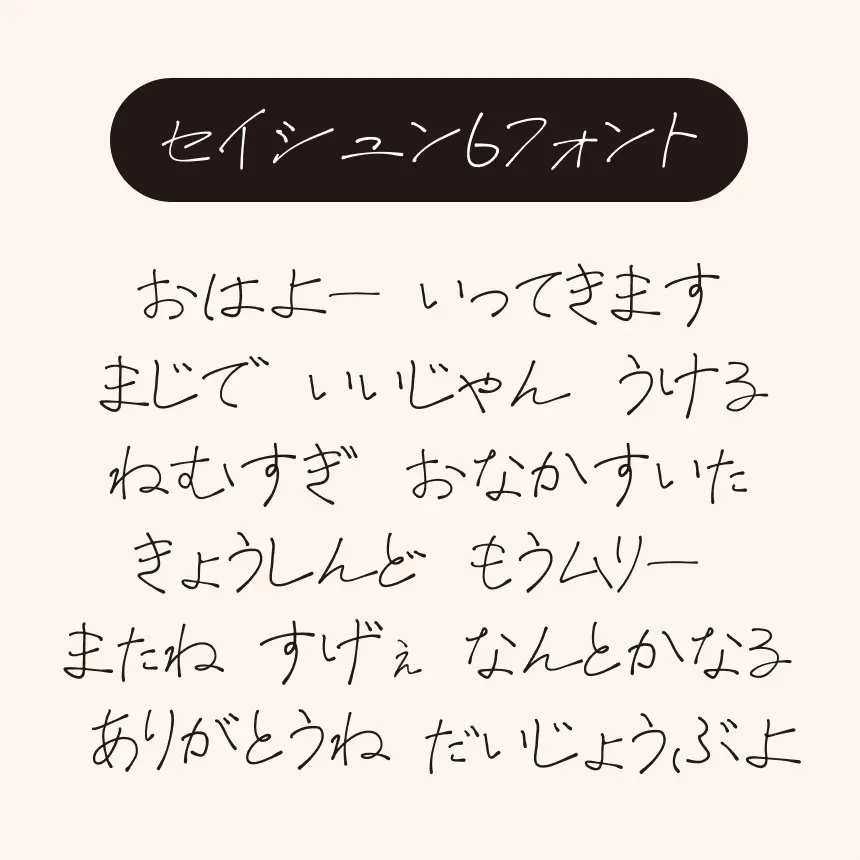 セイシュン6フォント
おはよー いってきます
まじで いいじゃん うける
ねむすぎ おなかすいた
きょうしんど もうムリー
またね すげぇ なんとかなる
ありがとうね だいじょうぶよ